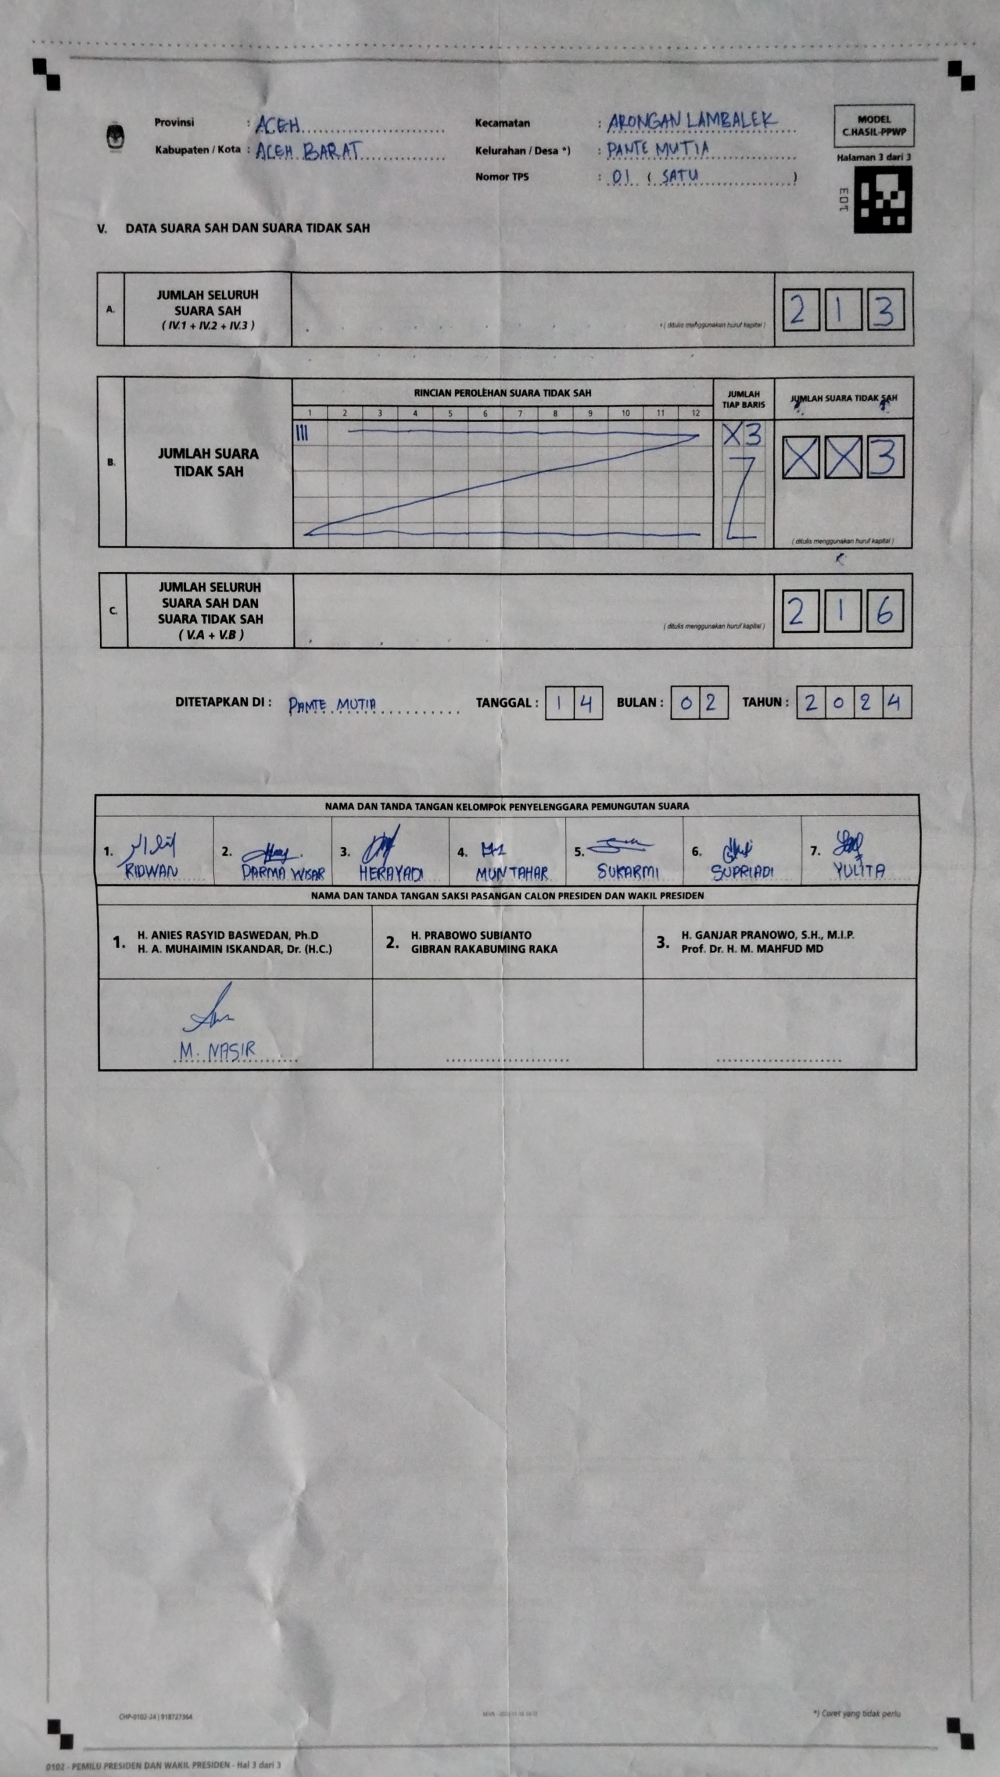 Provinsi : ACEH
Kabupaten / Kota : ACEH BARAT
Kecamatan : ARONGAN LAMBALEK
Kelurahan / Desa *) : PANTE MUTIA
Nomor TPS : 01 ( SATU )
MODEL
C.HASIL-PPWP
Halaman 3 dari 3
V. DATA SUARA SAH DAN SUARA TIDAK SAH
A. JUMLAH SELURUH
SUARA SAH
( IV.1 + IV.2 + IV.3 )
*( ditulis menggunakan huruf kapital )
2 1 3
B. JUMLAH SUARA
TIDAK SAH
RINCIAN PEROLEHAN SUARA TIDAK SAH
1 2 3 4 5 6 7 8 9 10 11 12
JUMLAH
TIAP BARIS
X3
JUMLAH SUARA TIDAK SAH
X X 3
( ditulis menggunakan huruf kapital )
C. JUMLAH SELURUH
SUARA SAH DAN
SUARA TIDAK SAH
( V.A + V.B )
( ditulis menggunakan huruf kapital )
2 1 6
DITETAPKAN DI : PANTE MUTIA TANGGAL : 1 4 BULAN : 0 2 TAHUN : 2 0 2 4
NAMA DAN TANDA TANGAN KELOMPOK PENYELENGGARA PEMUNGUTAN SUARA
1. RIDWAN
2. DARMA WISAR
3. HERAYADI
4. MUNTAHAR
5. SUKARMI
6. SUPRIADI
7. YULITA
NAMA DAN TANDA TANGAN SAKSI PASANGAN CALON PRESIDEN DAN WAKIL PRESIDEN
1. H. ANIES RASYID BASWEDAN, Ph.D
H. A. MUHAIMIN ISKANDAR, Dr. (H.C.)
2. H. PRABOWO SUBIANTO
GIBRAN RAKABUMING RAKA
3. H. GANJAR PRANOWO, S.H., M.I.P.
Prof. Dr. H. M. MAHFUD MD
M. NASIR
*) Coret yang tidak perlu
0102 - PEMILU PRESIDEN DAN WAKIL PRESIDEN - Hal 3 dari 3